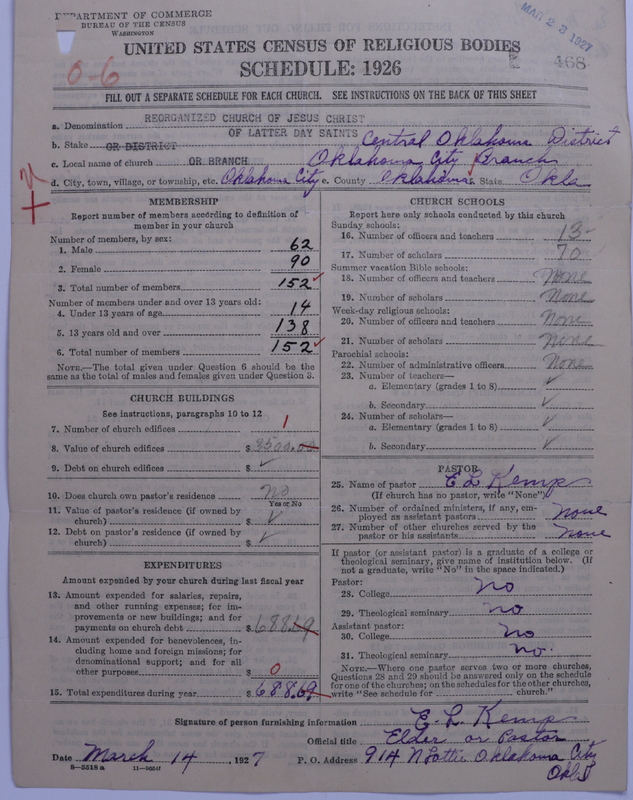 DEPARTMENT OF COMMERCE
BUREAU OF THE CENSUS
WASHINGTON
MAR 23 1927
UNITED STATES CENSUS OF RELIGIOUS BODIES
468
0-6
SCHEDULE: 1926
FILL OUT A SEPARATE SCHEDULE FOR EACH CHURCH. SEE INSTRUCTIONS ON THE BACK OF THIS SHEET
REORGANIZED CHURCH OF JESUS CHRIST
a. Denomination
OF LATTER DAY SAINTS
b. Stake OR DISTRICT Central Oklahoma District
c. Local name of church OR BRANCH Oklahoma City Branch
d. City, town, village, or township, etc. Oklahoma City e. County Oklahoma State Okla
MEMBERSHIP
Report number of members according to definition of
member in your church
Number of members, by sex:
1. Male 62
2. Female 90
3. Total number of members 152
Number of members under and over 13 years old:
4. Under 13 years of age 14
5. 13 years old and over 138
6. Total number of members 152
NOTE.—The total given under Question 6 should be
same as the total of males and females given under Question 3.
CHURCH BUILDINGS
See instructions, paragraphs 10 to 12
7. Number of church edifices 1
8. Value of church edifices $ 3500.00
9. Debt on church edifices $
10. Does church own pastor's residence no
Yes or No
11. Value of pastor's residence (if owned by
church) $
12. Debt on pastor's residence (if owned by
church) $
EXPENDITURES
Amount expended by your church during last fiscal year
13. Amount expended for salaries, repairs,
and other running expenses; for im-
provements or new buildings; and for
payments on church debt $ 688.69
14. Amount expended for benevolences, in-
cluding home and foreign missions; for
denominational support; and for all
other purposes $ 0
15. Total expenditures during year $ 688.69
CHURCH SCHOOLS
Report here only schools conducted by this church
Sunday schools:
16. Number of officers and teachers 13
17. Number of scholars 70
Summer vacation Bible schools:
18. Number of officers and teachers None
19. Number of scholars None
Week-day religious schools:
20. Number of officers and teachers None
21. Number of scholars None
Parochial schools:
22. Number of administrative officers None
23. Number of teachers—
a. Elementary (grades 1 to 8)
b. Secondary
24. Number of scholars—
a. Elementary (grades 1 to 8)
b. Secondary
PASTOR
25. Name of pastor E L Kemp
(If church has no pastor, write "None")
26. Number of ordained ministers, if any, em-
ployed as assistant pastors none
27. Number of other churches served by the
pastor or his assistants none
If pastor (or assistant pastor) is a graduate of a college or
theological seminary, give name of institution below. (If
not a graduate, write "No" in the space indicated.)
Pastor:
28. College no
29. Theological seminary no
Assistant pastor:
30. College no
31. Theological seminary no.
NOTE.—Where one pastor serves two or more churches,
Questions 28 and 29 should be answered only on the schedule
for one of the churches; on the schedules for the other churches,
write "See schedule for church."
Signature of person furnishing information E. L. Kemp
Official title Elder or Pastor
Date March 14, 1927 P. O. Address 914 N Lottie Oklahoma City
Okla
8-5518 a